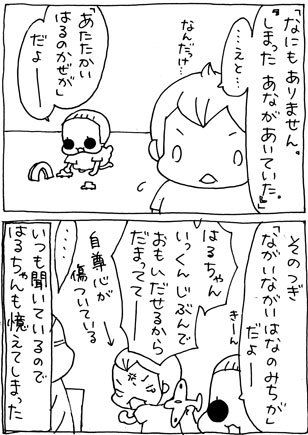 「なにも ありません。
『しまった あながあいていた。』
……えと…
なんだっけ…
「あたたかい
はるのかぜが」
だよー
そのつぎ
「ながいながいはなのみちが」
だよー
きーん
はるちゃん
いっくんじぶんで
おもいだせるから
だまってて
自尊心が
傷ついている
…いつも聞いているので
はるちゃんも憶えてしまった